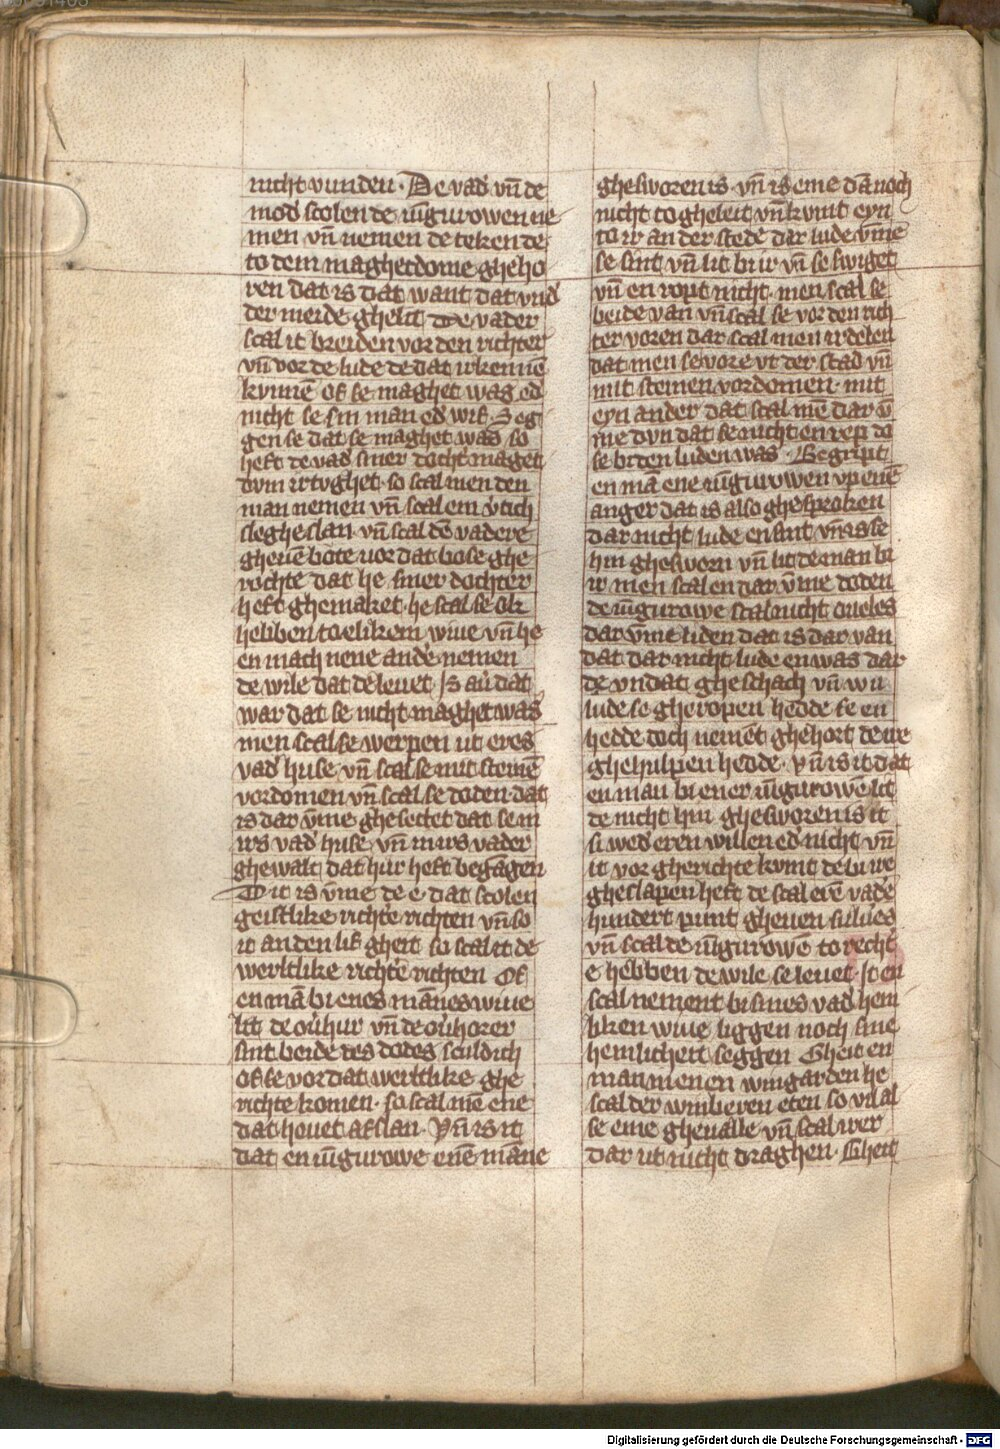 nicht vunden. De vad' vn̄ de
mod' scolen de iu̅gurowen ne
men vn̄ nemen de teken de
to dem maghetdome gheho
ren dat is dat want dat vnd'
der meide ghelit de vader
scal it breiden vor den richter
vn̄ vor de lude de dat irkenne̅
kvnne̅ of se maghet was ed'
nicht se sin man ed' wif. Seg
gen se dat se maghet was so
heft de vad' siner docht' maget
dvm irtvghet. so scal men den
man nemen vn̄ scal em v̄tich
slegheslan. vn̄ scal dē vadere
gheuē bote vor dat bose ghe
rochte dat he siner dochter
heft ghemaket. he scal se ok
hebben to elikem wiue vn̄ he
en mach nene ande' nemen
de wile dat de leuet Is au' dat
war dat se nicht maghet was
men scal se werpen ut eres
vad' huse vn̄ scal se mit stenē
vordomen vn̄ scal se doden dat
is dar v̄me ghesettet dat se in
irs vad' huse vn̄ in irs vader
ghewalt dat hur heft begāgen
Dit is v̄me de e. dat scolen
geistlike richte richten vn̄ so
it an den lif gheit so scal it de
werltlike richte richten Of
en mā bi enes mānes wiue
lit de ou'hur vn̄ de ou'horer
sint beide des dodes sculdich
of se vor dat werltlike ghe
richte komen. so scal mē ene
dat houet afslan. Vn̄ is it
dat en iu̅gurowe enē māne
ghesworen is. vn̄ is eme dānoch
nicht to gheleit vn̄ kvmt eyn
to ir an der stede dar lude v̄me
se sint vn̄ lit bi ir vn̄ se swiget
vn̄ en ropt nicht. men scal se
beide van vn̄ scal se vor den rich
ter voren dar scal men irdelen
dat men se vore vt der stad vn̄
mit steinen vordomen. mit
eyn ander dat scal mē dar v̄
me dvn dat se nicht en rep do
se bi den luden was. Begript
en mā ene iu̅gurowen vp enē
anger dat is also ghesproken
dar nicht lude en sint vn̄ is se
him ghesworn vn̄ lit de man bi
ir men scal en dar v̄me doden
de iu̅gurowe scal nicht oueles
dar v̄me liden dat is dar van
dat dar nicht lude en was dar
de vndat gheschach vn̄ wu
lude se gheropen hedde se en
hedde doch nement ghehort de ire
ghehulpen hedde. vn̄ is it dat
en man bi ener iu̅gurowē lit
de nicht him ghesworen is it
si wed' eren willen ed' nicht vn̄
it vor gherichte kvmt de bi ire
gheslapen heft de scal erē vade'
hundert punt gheuen silu'es
vn̄ scal de iu̅gurowē to recht'
e hebben de wile se leuet. It en
scal nement bi sines vad' hem
liken wiue liggen noch sine
hemlicheit seggen Gheit en
man in enen wingarden he
scal der winberen eten so vil al
se eme gheualle vn̄ scal irer
dar ut nicht draghen. Gheit
Digitalisierung gefördert durch die Deutsche Forschungsgemeinschaft - DFG